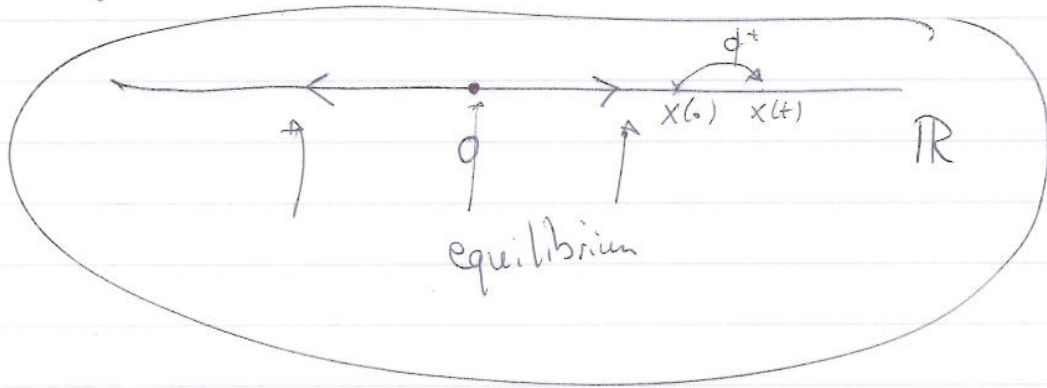 φᵗ
x(0) x(t)
0
ℝ
equilibrium